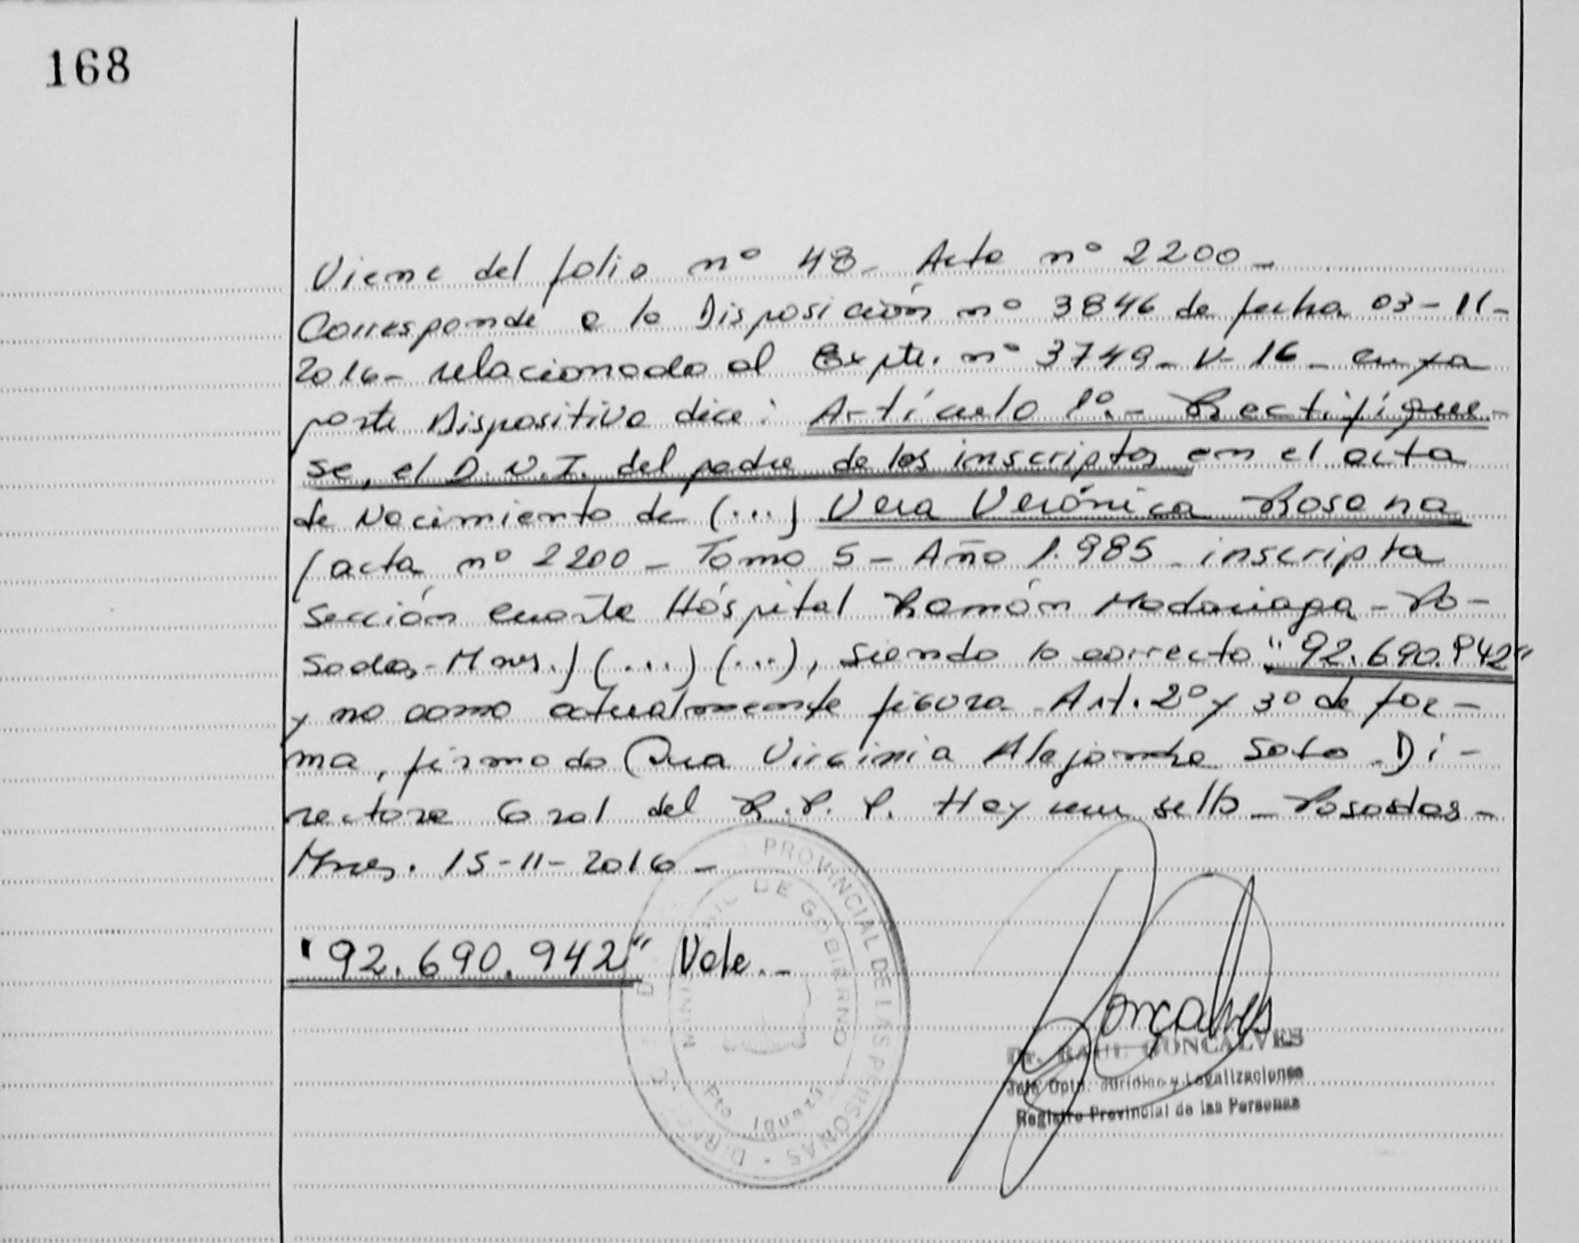 168
Viene del folio nº 48- Acta nº 2200-
Corresponde a la Disposición nº 3846 de fecha 03-11-
2016- relacionado al Expte. nº 3749- V- 16- cuya
parte Dispositiva dice: Artículo 1º.- Rectifíque-
se, el D.N.I. del padre de los inscriptos en el acta
de Nacimiento de (...) Vera Verónica Rosana
(acta nº 2200- Tomo 5- Año 1.985 inscripta
Sección Cuarta Hóspital Ramón Madariaga- Po-
sadas,- Mnes.) (...) (...), siendo lo correcto "92.690.942"
y no como actualmente figura. Art. 2º y 3º de for-
ma, firmado Dra Virginia Alejandra Soto Di-
rectora Gral del R.P.P. Hay un sello- Posadas-
Mnes. 15-11-2016-
"92.690.942" Vale.-
PROVINCIAL DE LAS PERSONAS - DIREC
MINI DE GOBIERNO
Pto Iguazú
Goncalves
Dr. RAUL GONCALVES
Jefe Dpto. Jurídico y Legalizaciones
Registro Provincial de las Personas